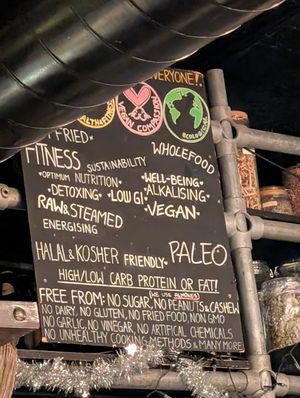 EVERYONE!
HEALTH&FITNESS
VEGAN COMPASSION
ECOLOGICAL
FRIED
WHOLEFOOD
FITNESS SUSTAINABILITY
OPTIMUM NUTRITION WELL-BEING
DETOXING LOW GI ALKALISING
RAW & STEAMED VEGAN
ENERGISING
HALAL & KOSHER FRIENDLY PALEO
HIGH/LOW CARB PROTEIN OR FAT!
WE USE ALMONDS
FREE FROM: NO SUGAR, NO PEANUTS & CASHEW
NO DAIRY, NO GLUTEN, NO FRIED FOOD, NON GMO
NO GARLIC, NO VINEGAR, NO ARTIFICAL CHEMICALS
NO UNHEALTHY COOKING METHODS & MANY MORE